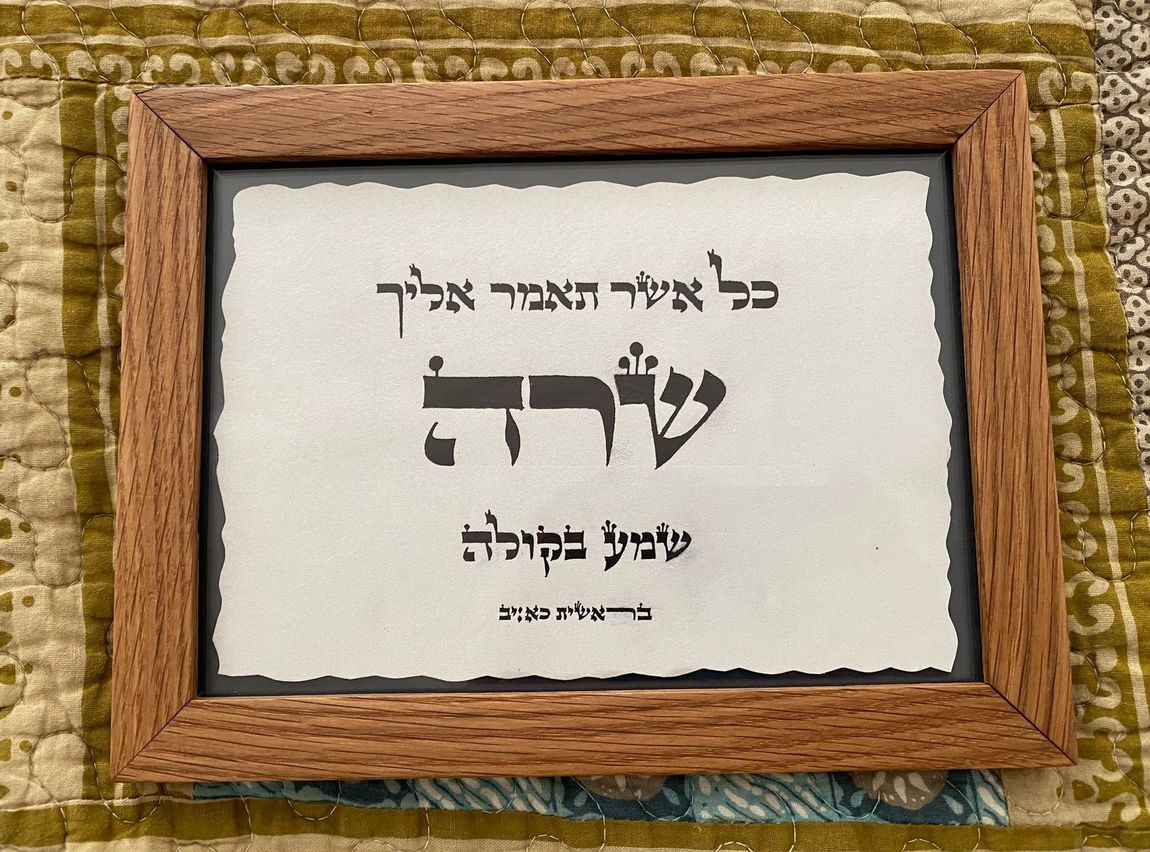 כל אשר תאמר אליך
שרה
שמע בקולה
בראשית כא:יב